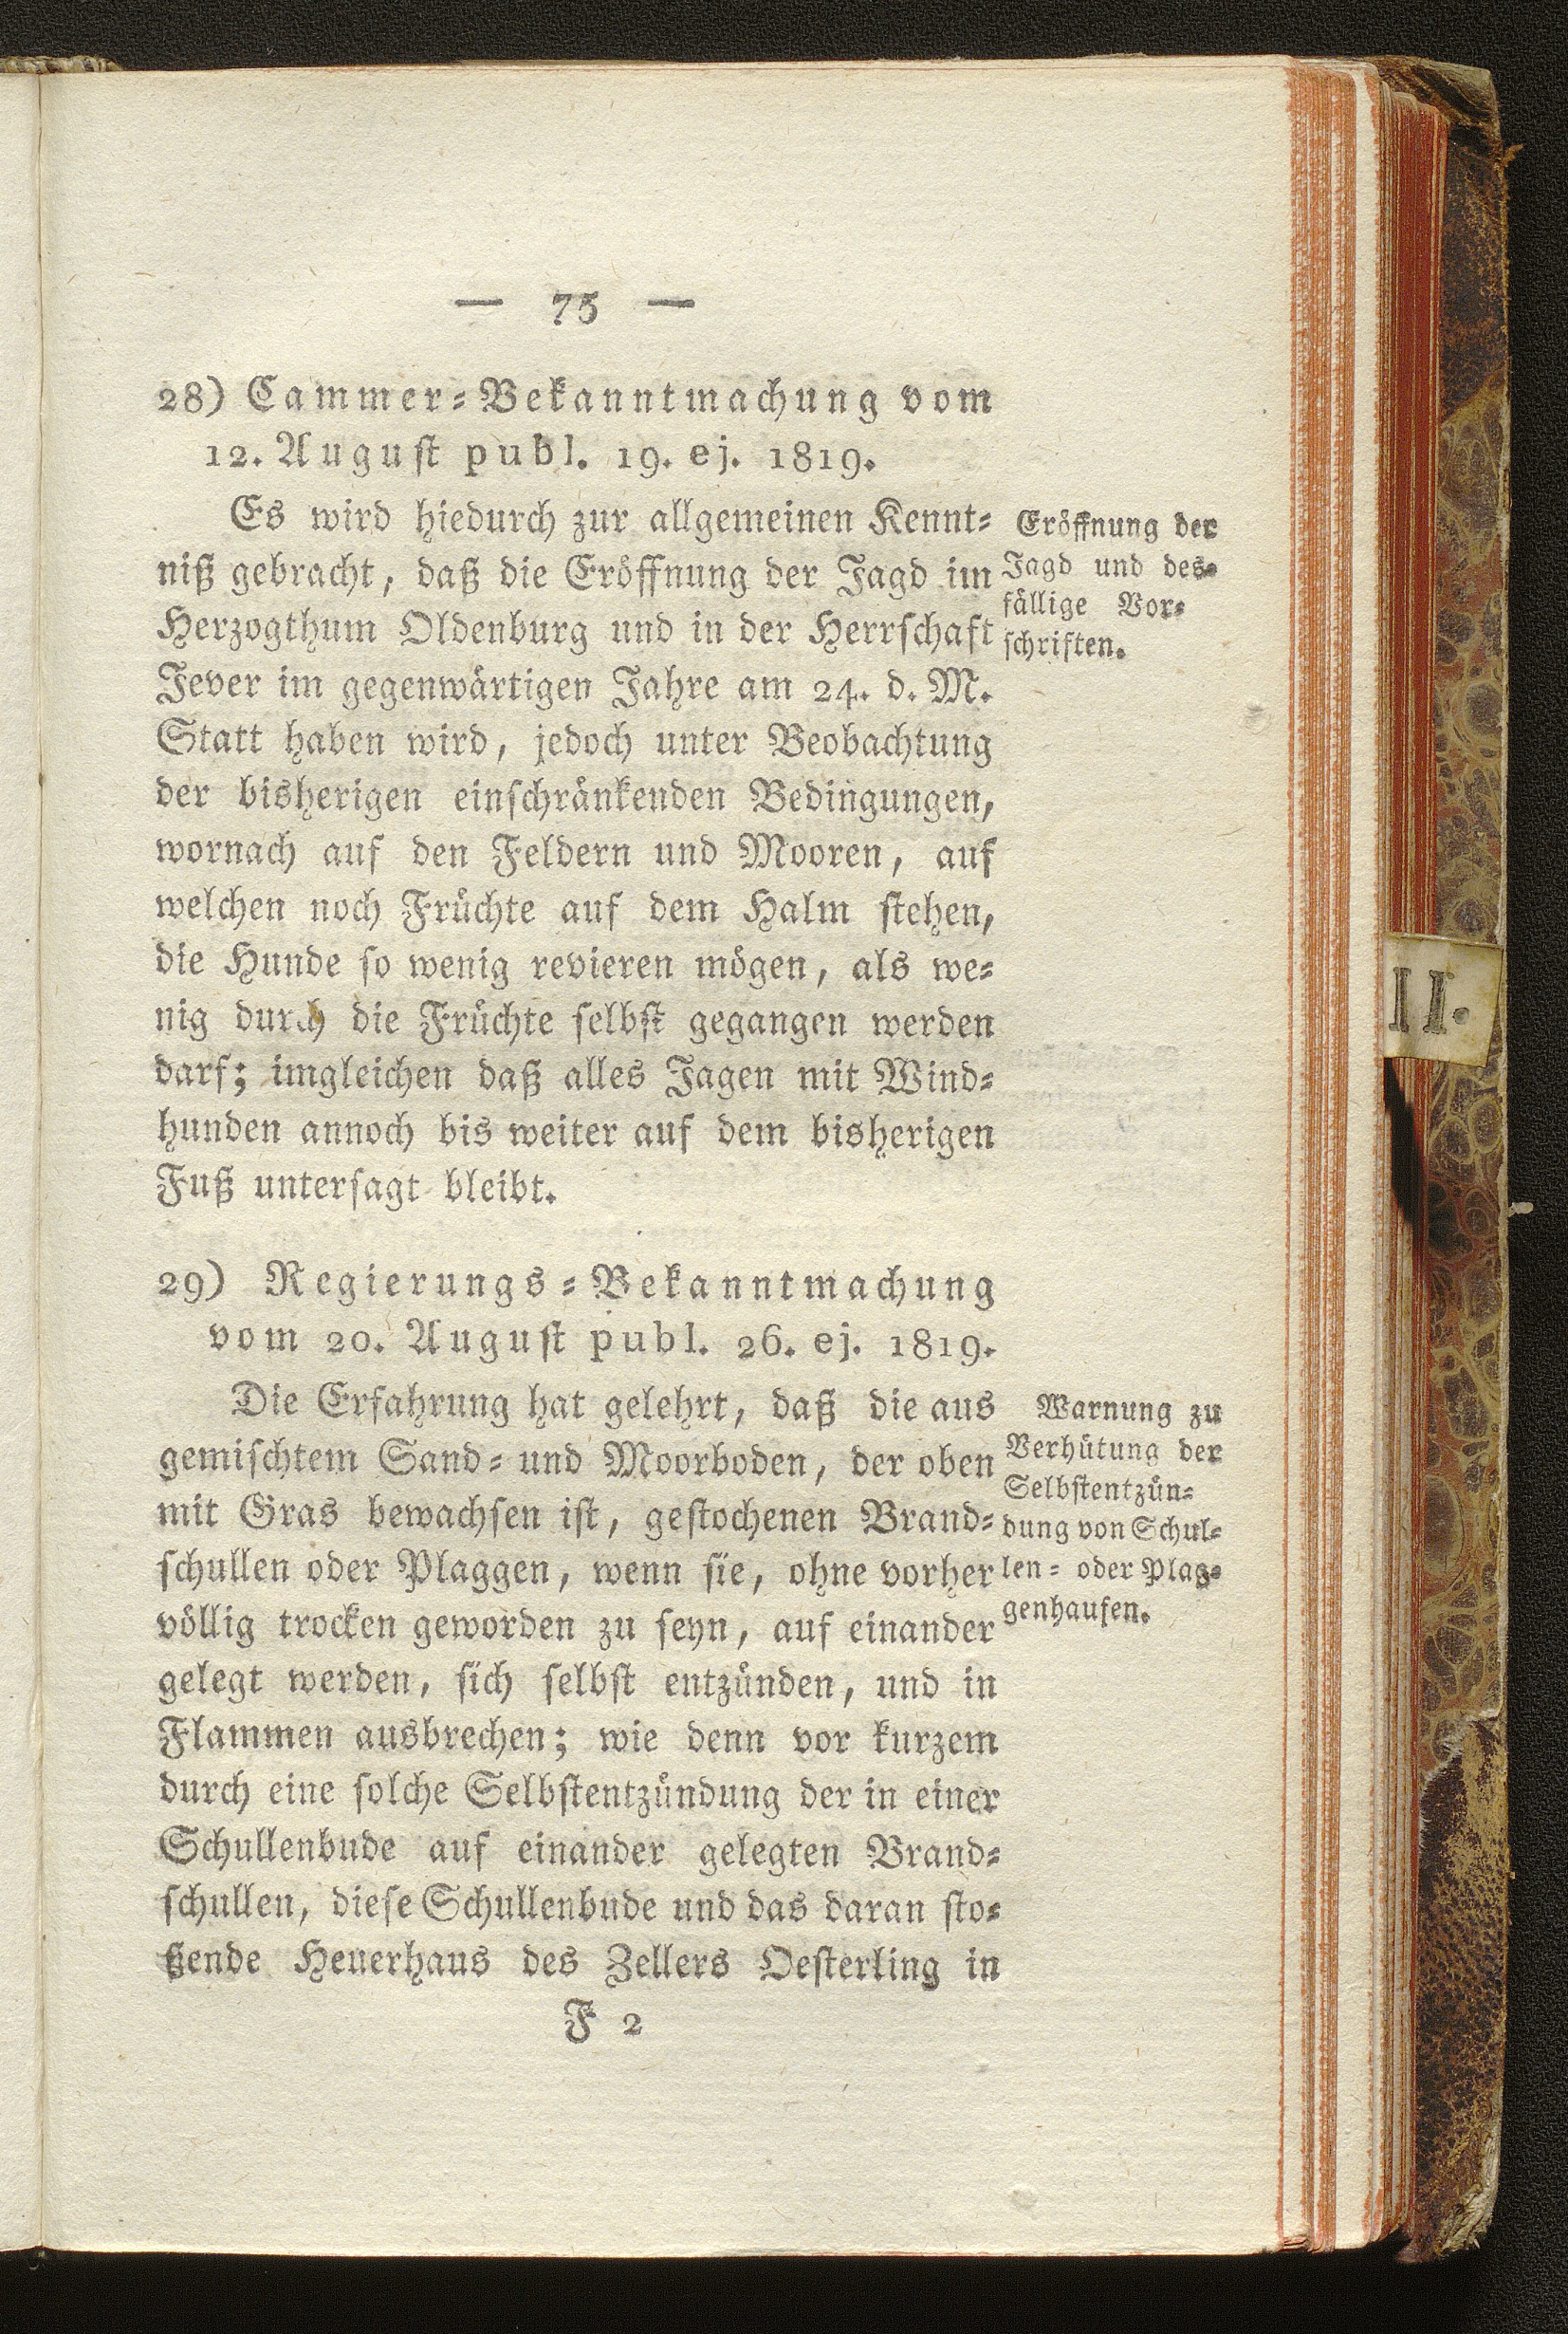 — 75 —
28) Cammer-Bekanntmachung vom
12. August publ. 19. ej. 1819.
Es wird hiedurch zur allgemeinen Kennt-
niß gebracht, daß die Eröffnung der Jagd im
Herzogthum Oldenburg und in der Herrschaft
Jever im gegenwärtigen Jahre am 24. d. M.
Statt haben wird, jedoch unter Beobachtung
der bisherigen einschränkenden Bedingungen,
wornach auf den Feldern und Mooren, auf
welchen noch Früchte auf dem Halm stehen,
die Hunde so wenig revieren mögen, als we-
nig durch die Früchte selbst gegangen werden
darf; imgleichen daß alles Jagen mit Wind-
hunden annoch bis weiter auf dem bisherigen
Fuß untersagt bleibt.
Eröffnung der
Jagd und des-
fällige Vor-
schriften.
29) Regierungs-Bekanntmachung
vom 20. August publ. 26. ej. 1819.
Die Erfahrung hat gelehrt, daß die aus
gemischtem Sand- und Moorboden, der oben
mit Gras bewachsen ist, gestochenen Brand-
schullen oder Plaggen, wenn sie, ohne vorher
völlig trocken geworden zu seyn, auf einander
gelegt werden, sich selbst entzünden, und in
Flammen ausbrechen; wie denn vor kurzem
durch eine solche Selbstentzündung der in einer
Schullenbude auf einander gelegten Brand-
schullen, diese Schullenbude und das daran sto-
ßende Heuerhaus des Zellers Oesterling in
Warnung zu
Verhütung der
Selbstentzün-
dung von Schul-
len- oder Plag-
genhaufen.
F 2
II.